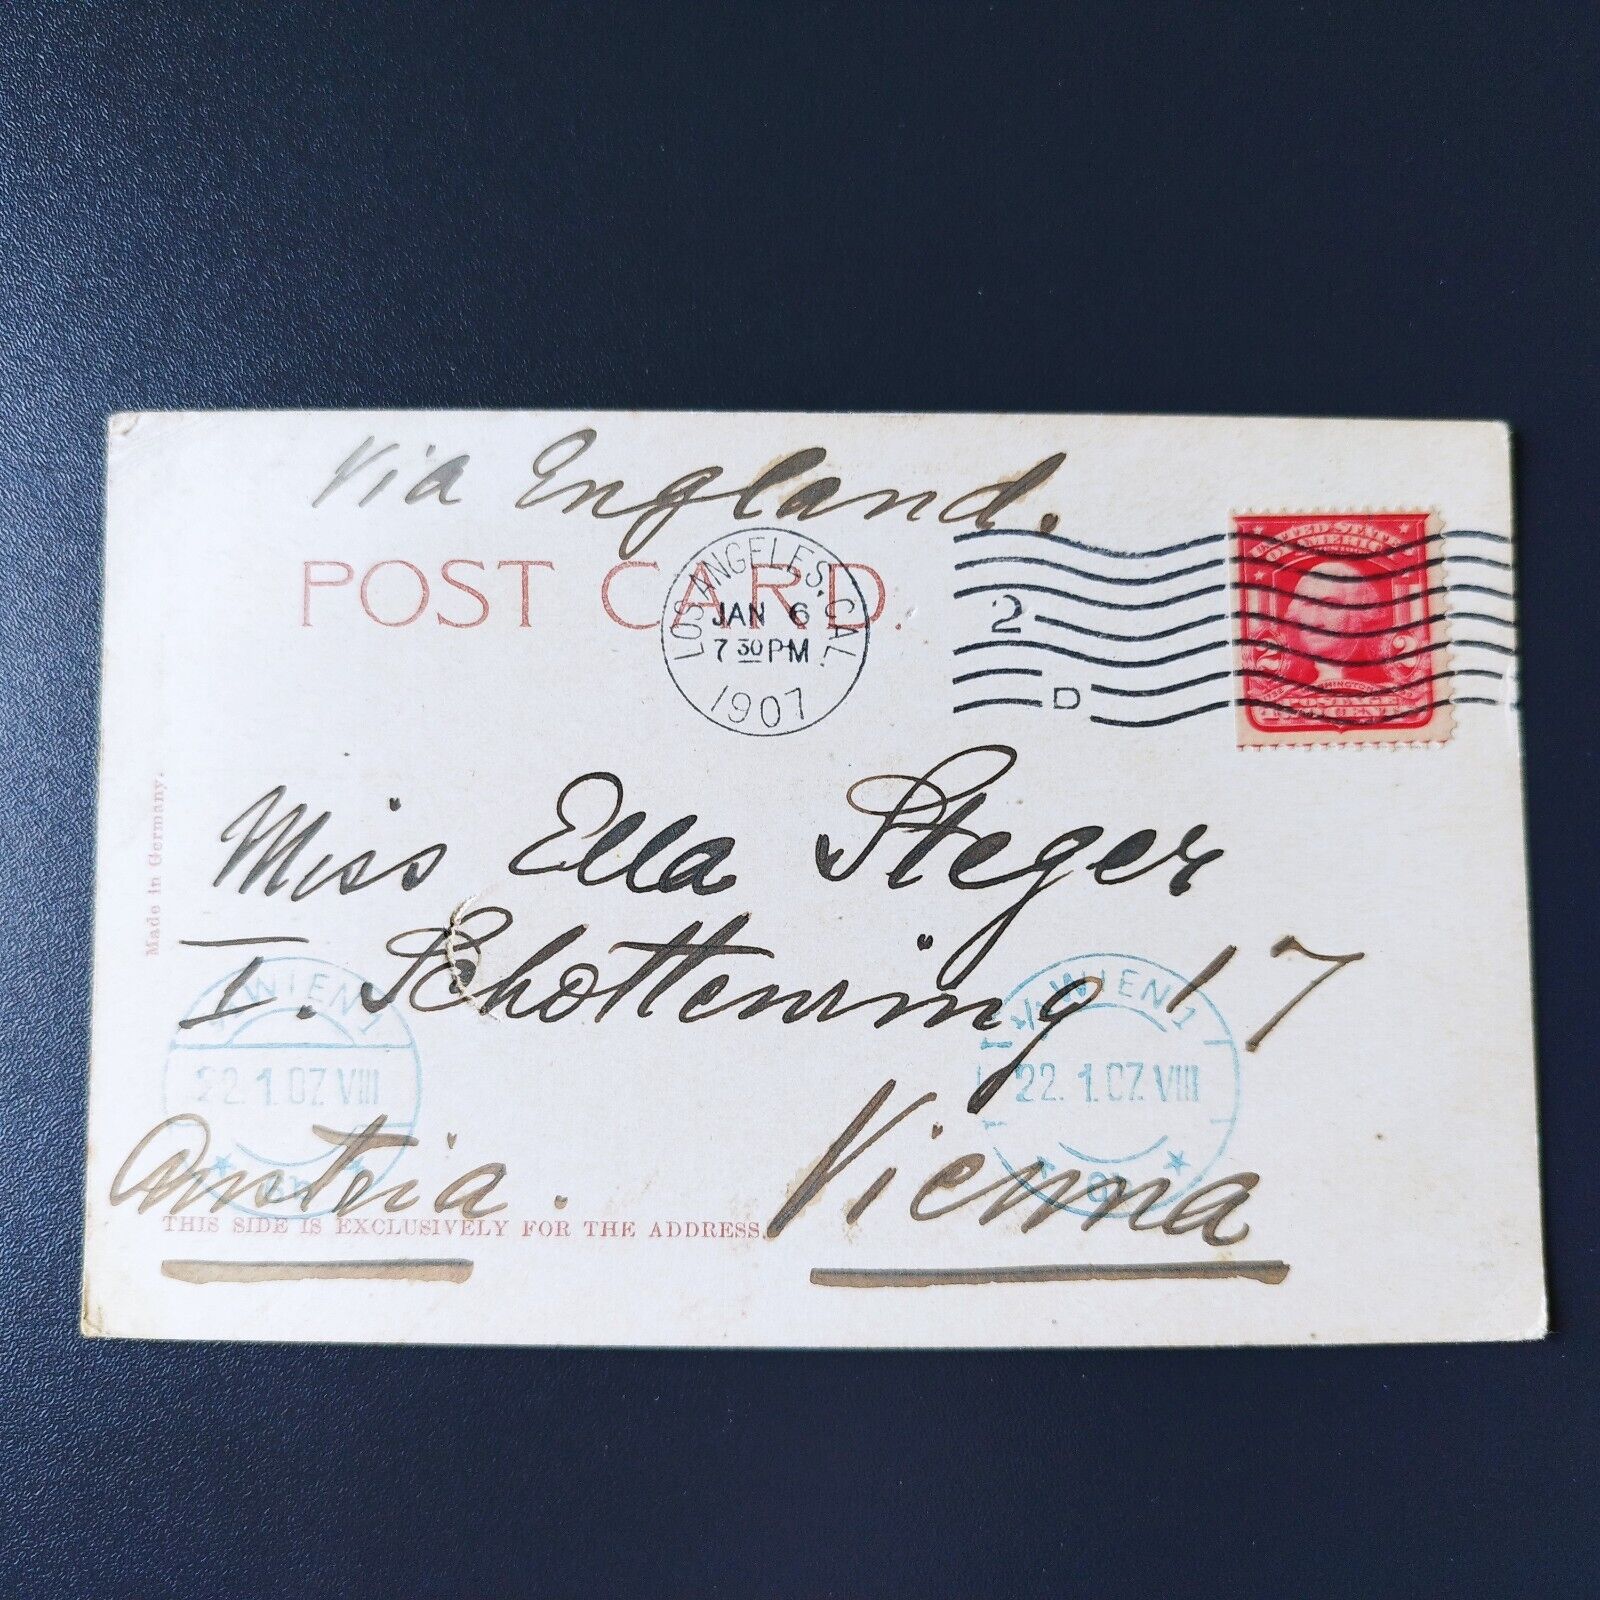 Via England.
POST CARD.
LOS ANGELES, CAL.
JAN 6
7 30 PM
1907
2
D
UNITED STATES
OF AMERICA
2 2
WASHINGTON
POSTAGE
TWO CENTS
Made in Germany.
Miss Ella Steger
I. Schottenring 17
WIEN 1
22.1.07.VIII
WIEN 1
22.1.07.VIII
Austria. Vienna
THIS SIDE IS EXCLUSIVELY FOR THE ADDRESS.